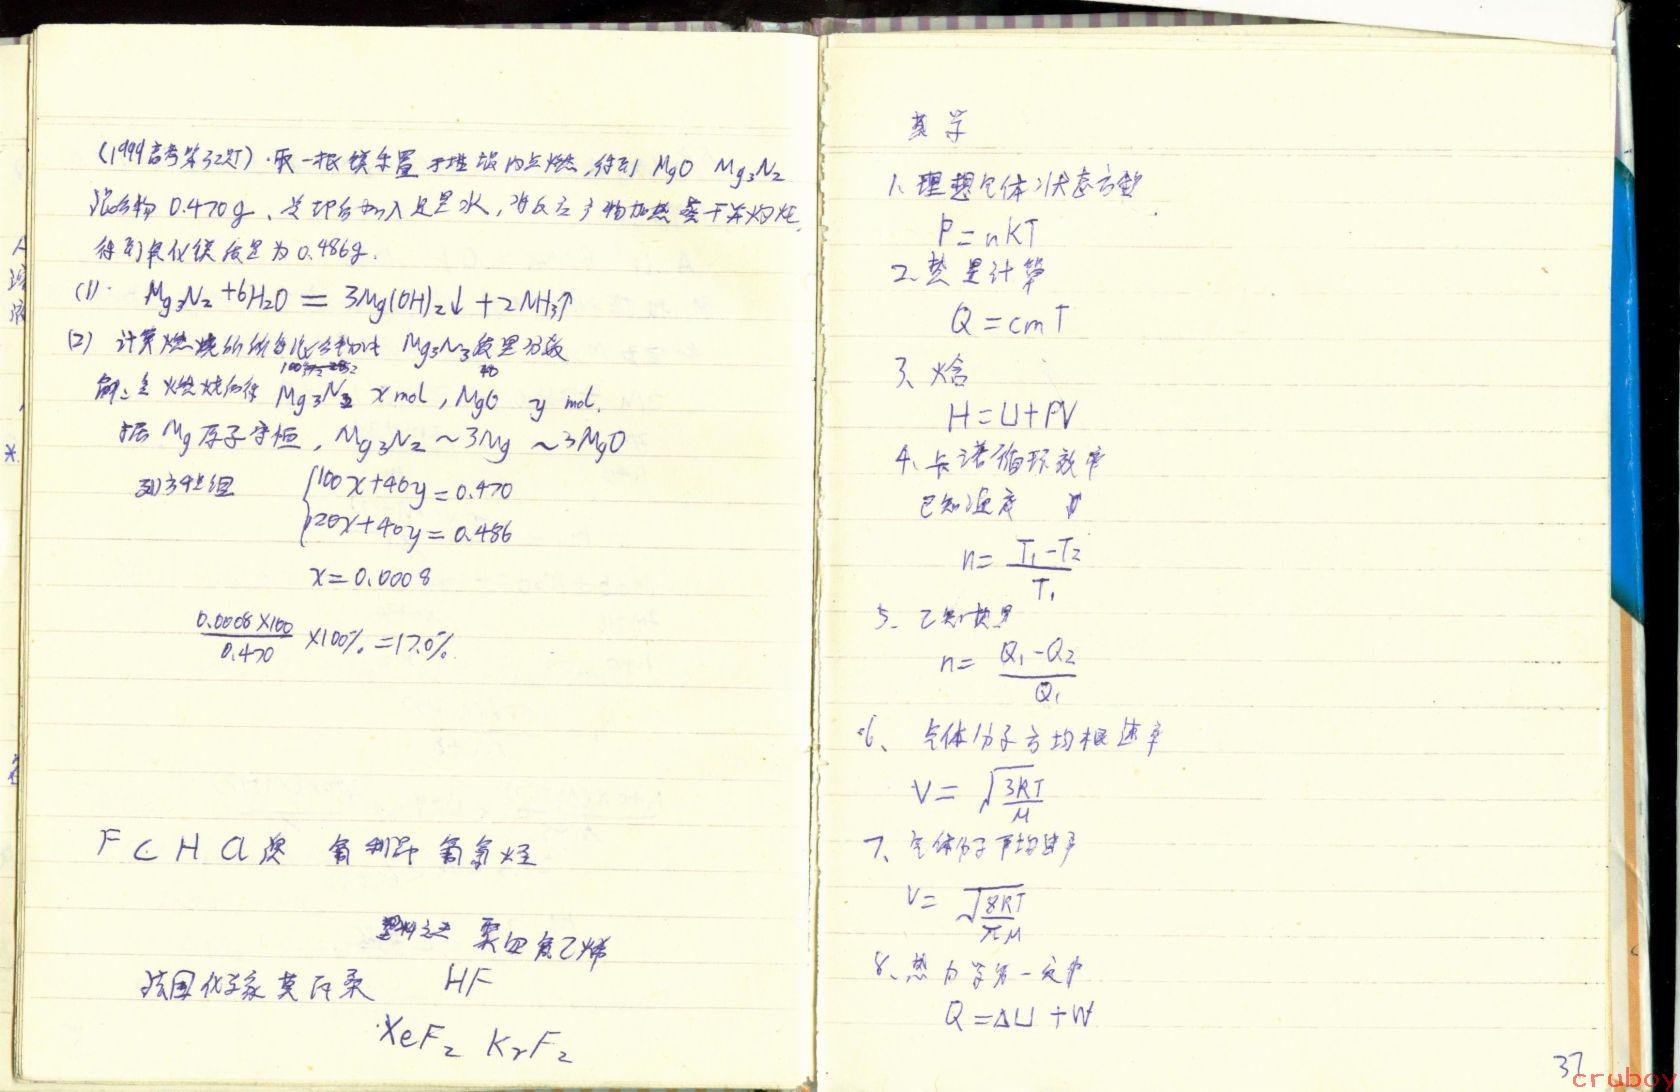 (1999高考第32题)·取一根镁条置于坩埚内点燃,得到 MgO Mg₃N₂
混合物 0.470g、冷却后加入足量水,将反应产物加热蒸干并灼烧,
得到氧化镁质量为 0.486g.
(1)· Mg₃N₂ + 6H₂O = 3Mg(OH)₂↓ + 2NH₃↑
(2) 计算燃烧所得混合物中 Mg₃N₃ 质量分数
解:设燃烧后得 Mg₃N₂ x mol, MgO y mol.
据 Mg 原子守恒, Mg₃N₂ ~ 3Mg ~ 3MgO
列方程组 100x+40y = 0.470
120x+40y = 0.486
x = 0.0008
0.0008×100 / 0.470 ×100% = 17.0%.
F C H Cl 溴 氟利昂 氟氯烃
塑料之王 聚四氟乙烯
法国化学家莫瓦桑 HF
XeF₂ KrF₂
热学
1、理想气体状态方程
P = nKT
2、热量计算
Q = cmT
3、焓
H = U + PV
4、卡诺循环效率
已知温度
η = T₁-T₂ / T₁
5、已知热量
η = Q₁-Q₂ / Q₁
6、气体分子方均根速率
V = √(3RT/M)
7、气体分子平均速率
V = √(8RT/πM)
8、热力学第一定律
Q = ΔU + W
37
cruboy